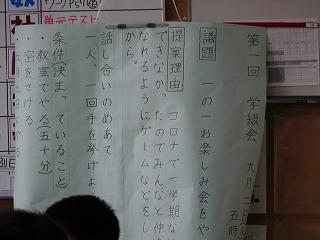 第一回 学級会 九月二日
五時
議題 一の一お楽しみ会をや
提案理由 コロナで一学期な
できなかったのでみんなと仲
なれるようにゲームなどをし
から。
話し合いのめあて
一人、一回手を挙げよ
条件(決まっていること)
・教室でやる(五十分)
・密をさける
単元テスト